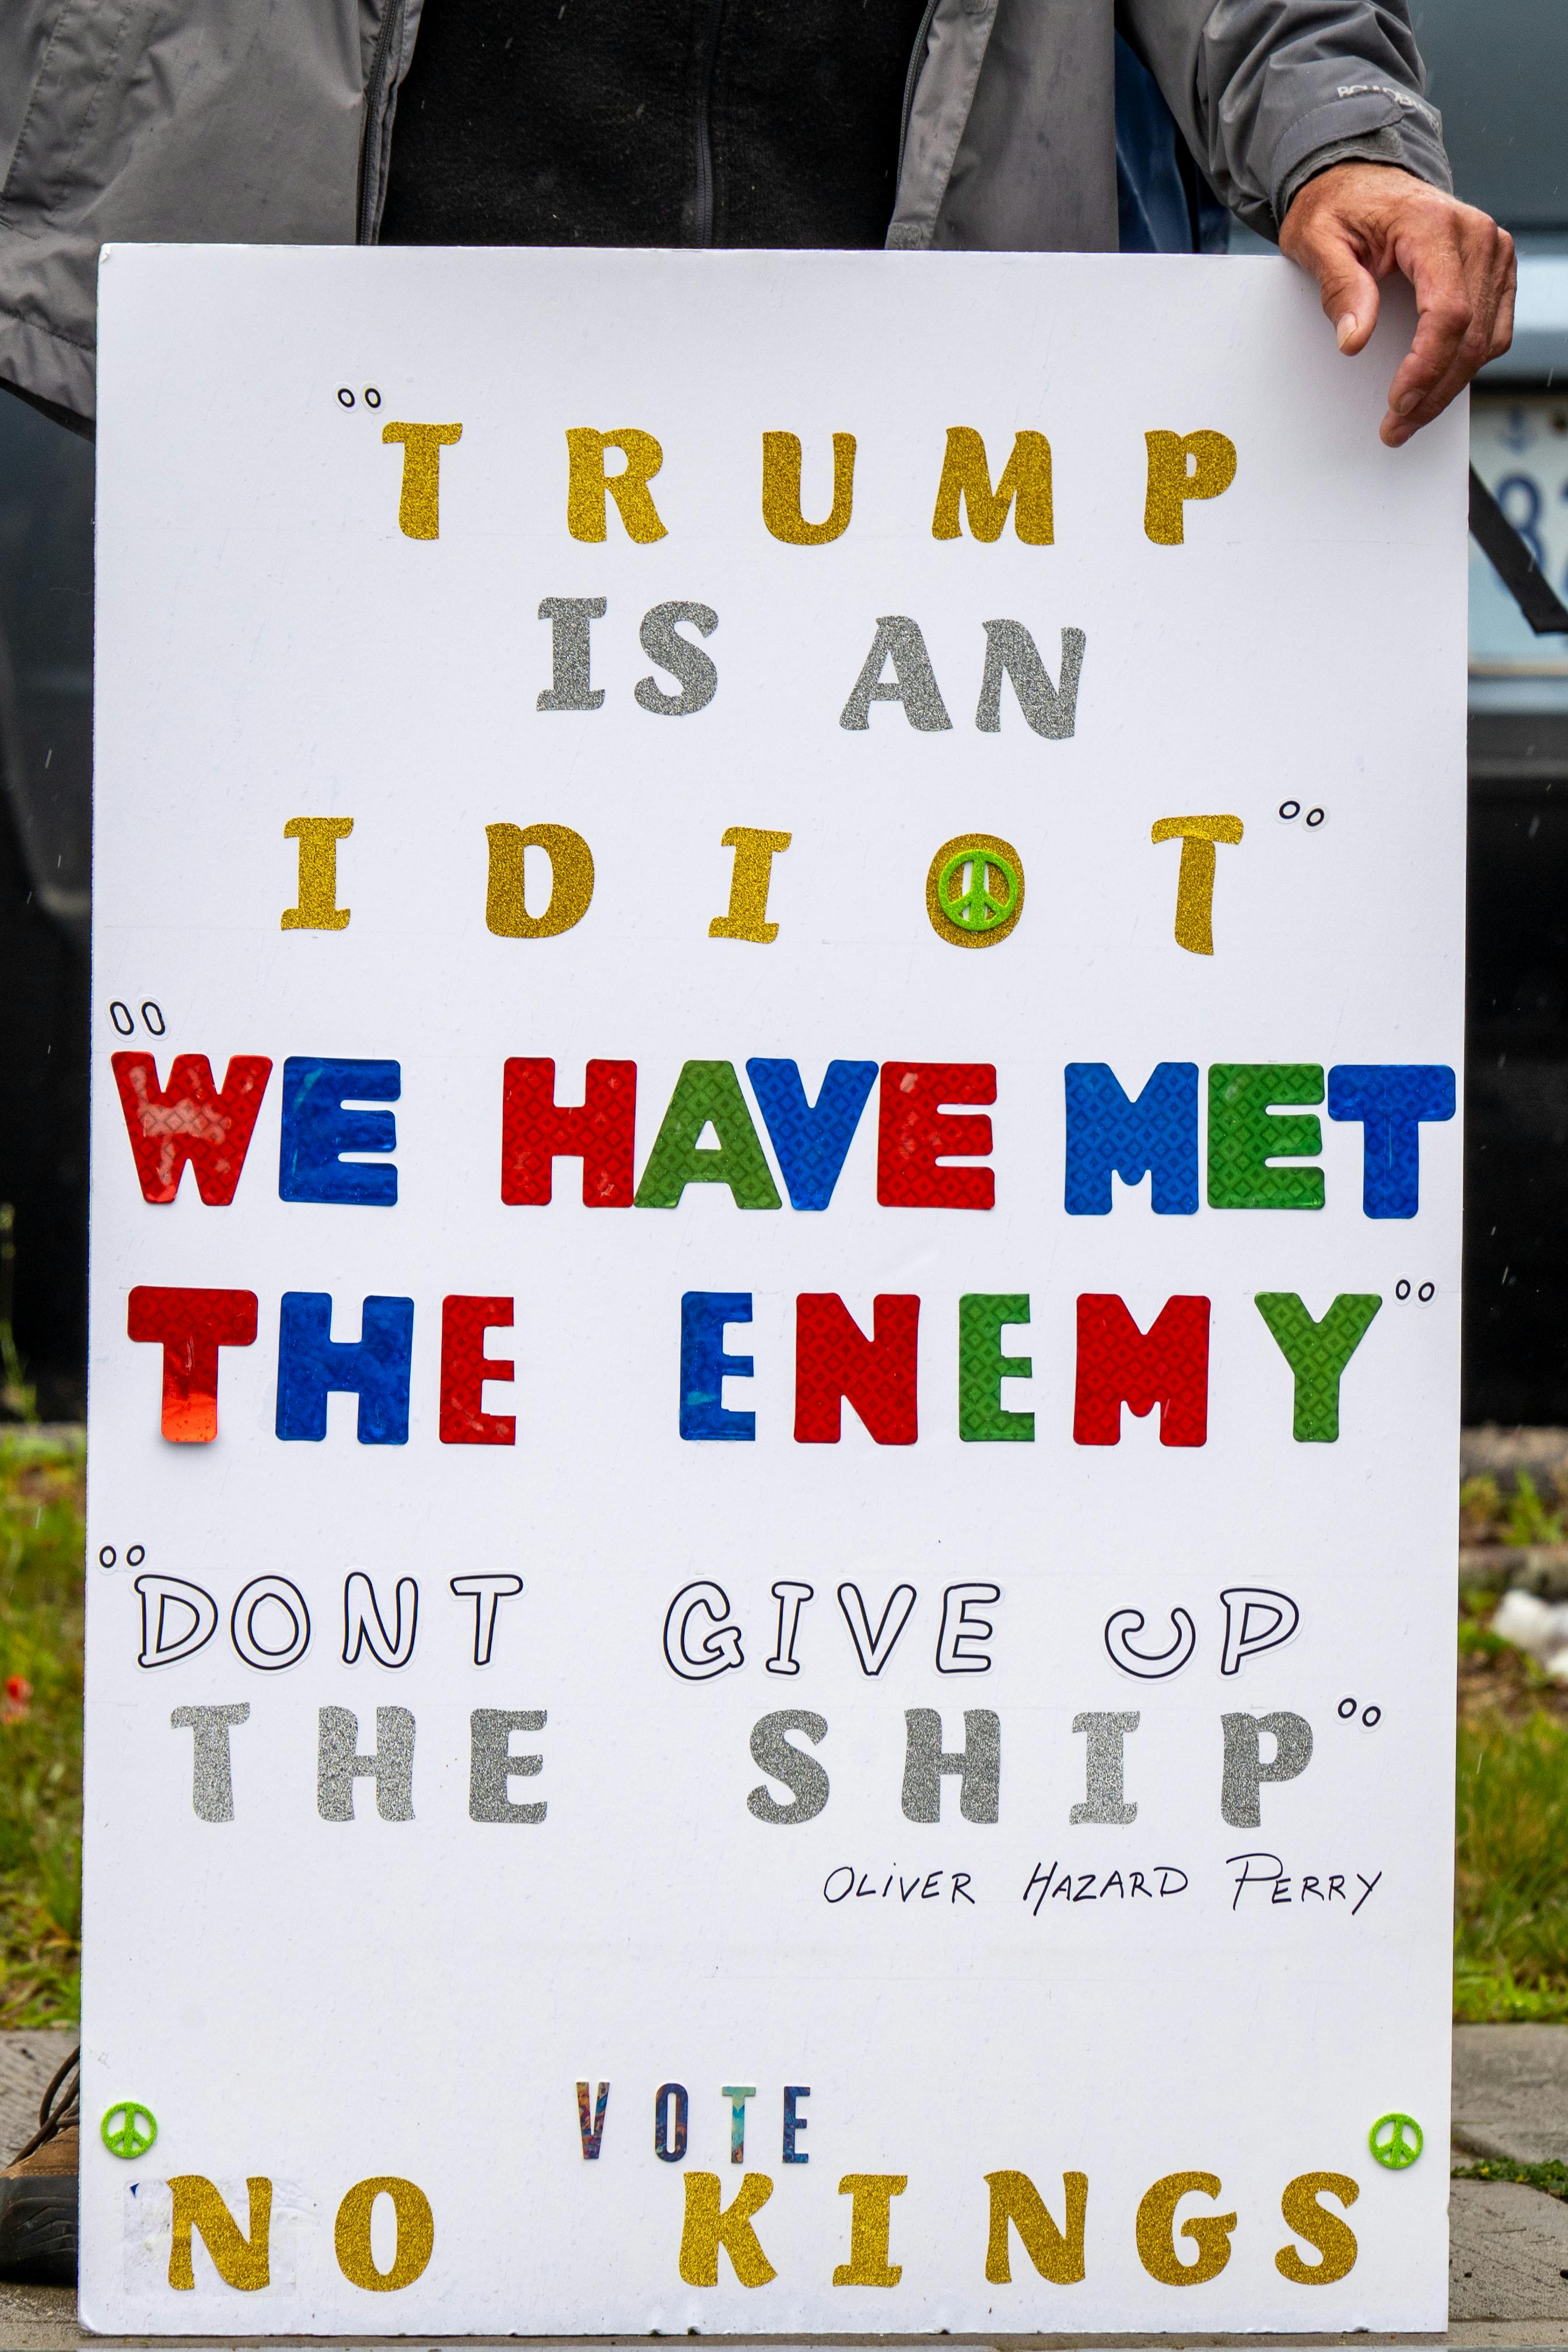 "TRUMP
IS AN
IDIOT"
"WE HAVE MET
THE ENEMY"
"DONT GIVE UP
THE SHIP"
OLIVER HAZARD PERRY
VOTE
NO KINGS